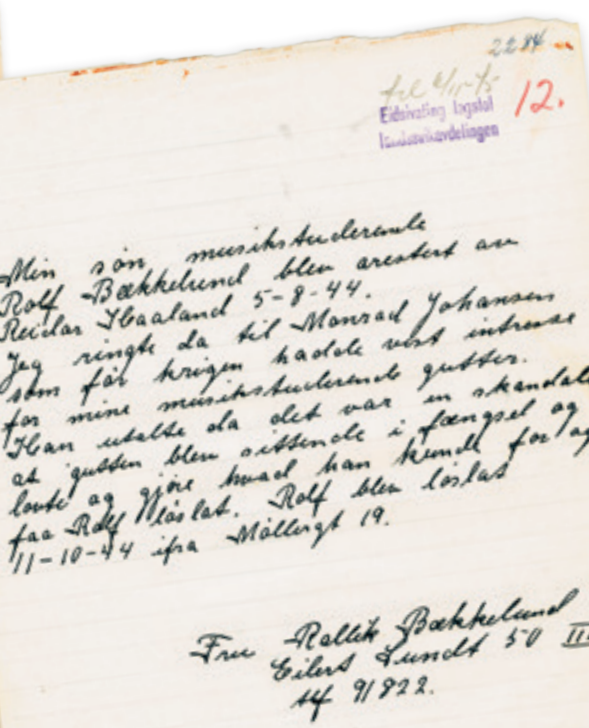 2284
12.
Eidsivating lagstol
landssvikavdelingen
Min søn musikstuderende
Rolf Bækkelund blev arestert av
Reidar Haaland 5-8-44.
Jeg ringte da til Monrad Johansen
som før krigen hadde vist intresse
for mine musikstuderende gutter.
Han utalte da det var en skandale
at gutten blev sittende i fængsel og
lovte og gjøre hvad han kunde for og
faa Rolf løslat. Rolf blev løslat
11-10-44 ifra Møllergt 19.
Fru Bækkelund
Eilert Sundt 50 III
tlf 91822.